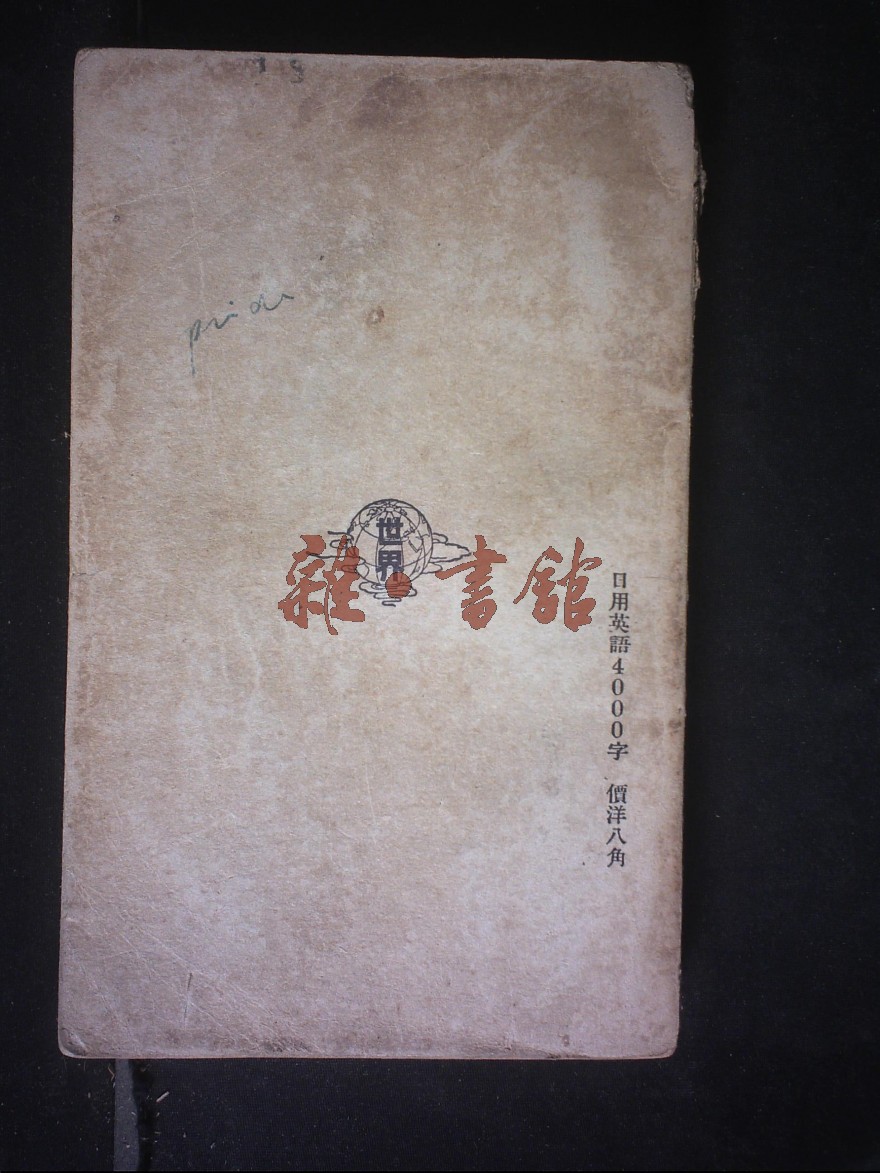 世界
雜·書館
日用英語4000字 價洋八角